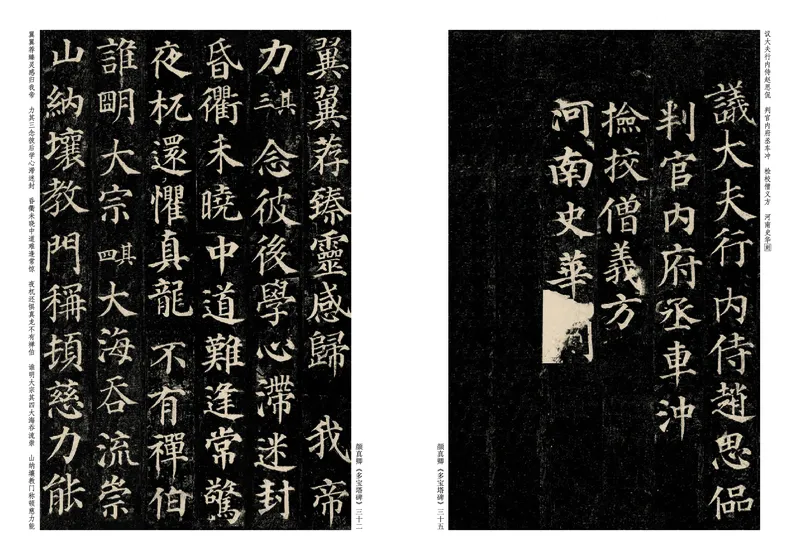 议大夫行内侍赵思侃 判官内府丞车冲 检校僧义方 河南史华刻
議大夫行内侍趙思偘
判官内府丞車沖
撿挍僧義方
河南史華
颜真卿《多宝塔碑》三十五
颜真卿《多宝塔碑》三十二
翼翼荐臻靈感歸我帝
力其三念彼後學心滯迷封
昏衢未曉中道難逢常驚
夜杌還懼真龍不有禪伯
誰明大宗其四大海吞流崇
山納壤教門稱頓慈力能
翼翼荐臻灵感归我帝 力其三念彼后学心滞迷封 昏衢未晓中道难逢常惊 夜杌还惧真龙不有禅伯 谁明大宗其四大海吞流崇 山纳壤教门称顿慈力能